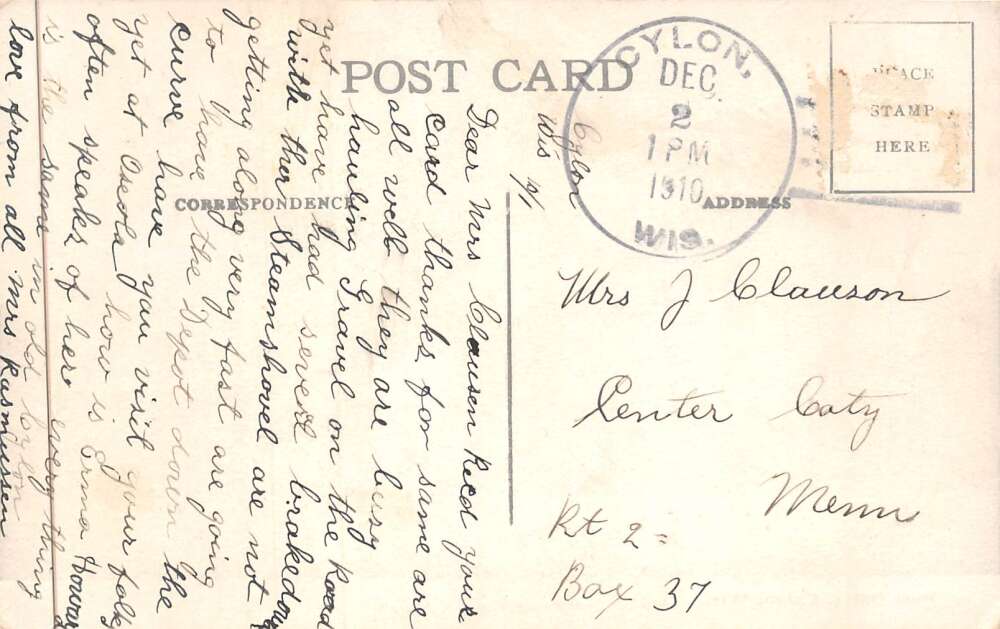 POST CARD
CYLON,
DEC.
2
1 PM
1910
WIS.
PLACE
STAMP
HERE
CORRESPONDENCE
ADDRESS
Cylon
Wis
Dear Mrs Clausen Recd your
card thanks for same are
all well they are busy
hauling Gravel on the Road
yet have had severl brakedowns
with ther Steamshovel are not
getting along very fast are going
to have the Depot down the
curve have you visit your folks
yet at Cseola how is Erma Howard
often speaks of here every thing
is the same in old Cylon
love from all Mrs Rasmussen
Mrs J Clauson
Center Caty
Menn
Rt 2=
Box 37